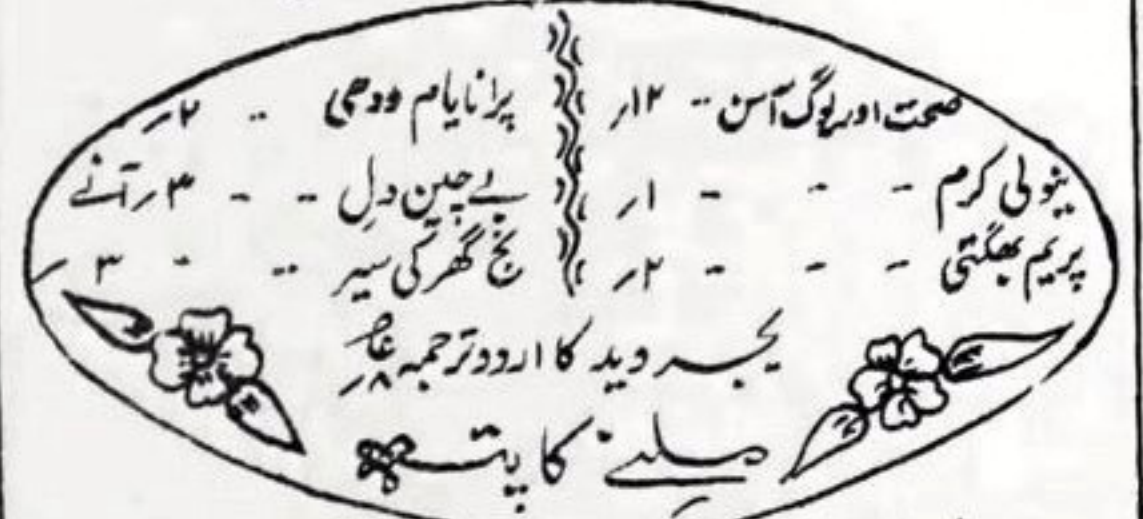 صحت اور یوگ آسن -- ۱۲ر
نیولی کرم - - - - ۱ر
پریم بھگتی - - - - ۲ر
پرانایام ودھی -- ۲ر
بے چین دل -- - - ۳ر آنے
نج گھر کی سیر -- - ۳ر
یجروید کا اردو ترجمہ ۸ر
ملنے کا پتہ